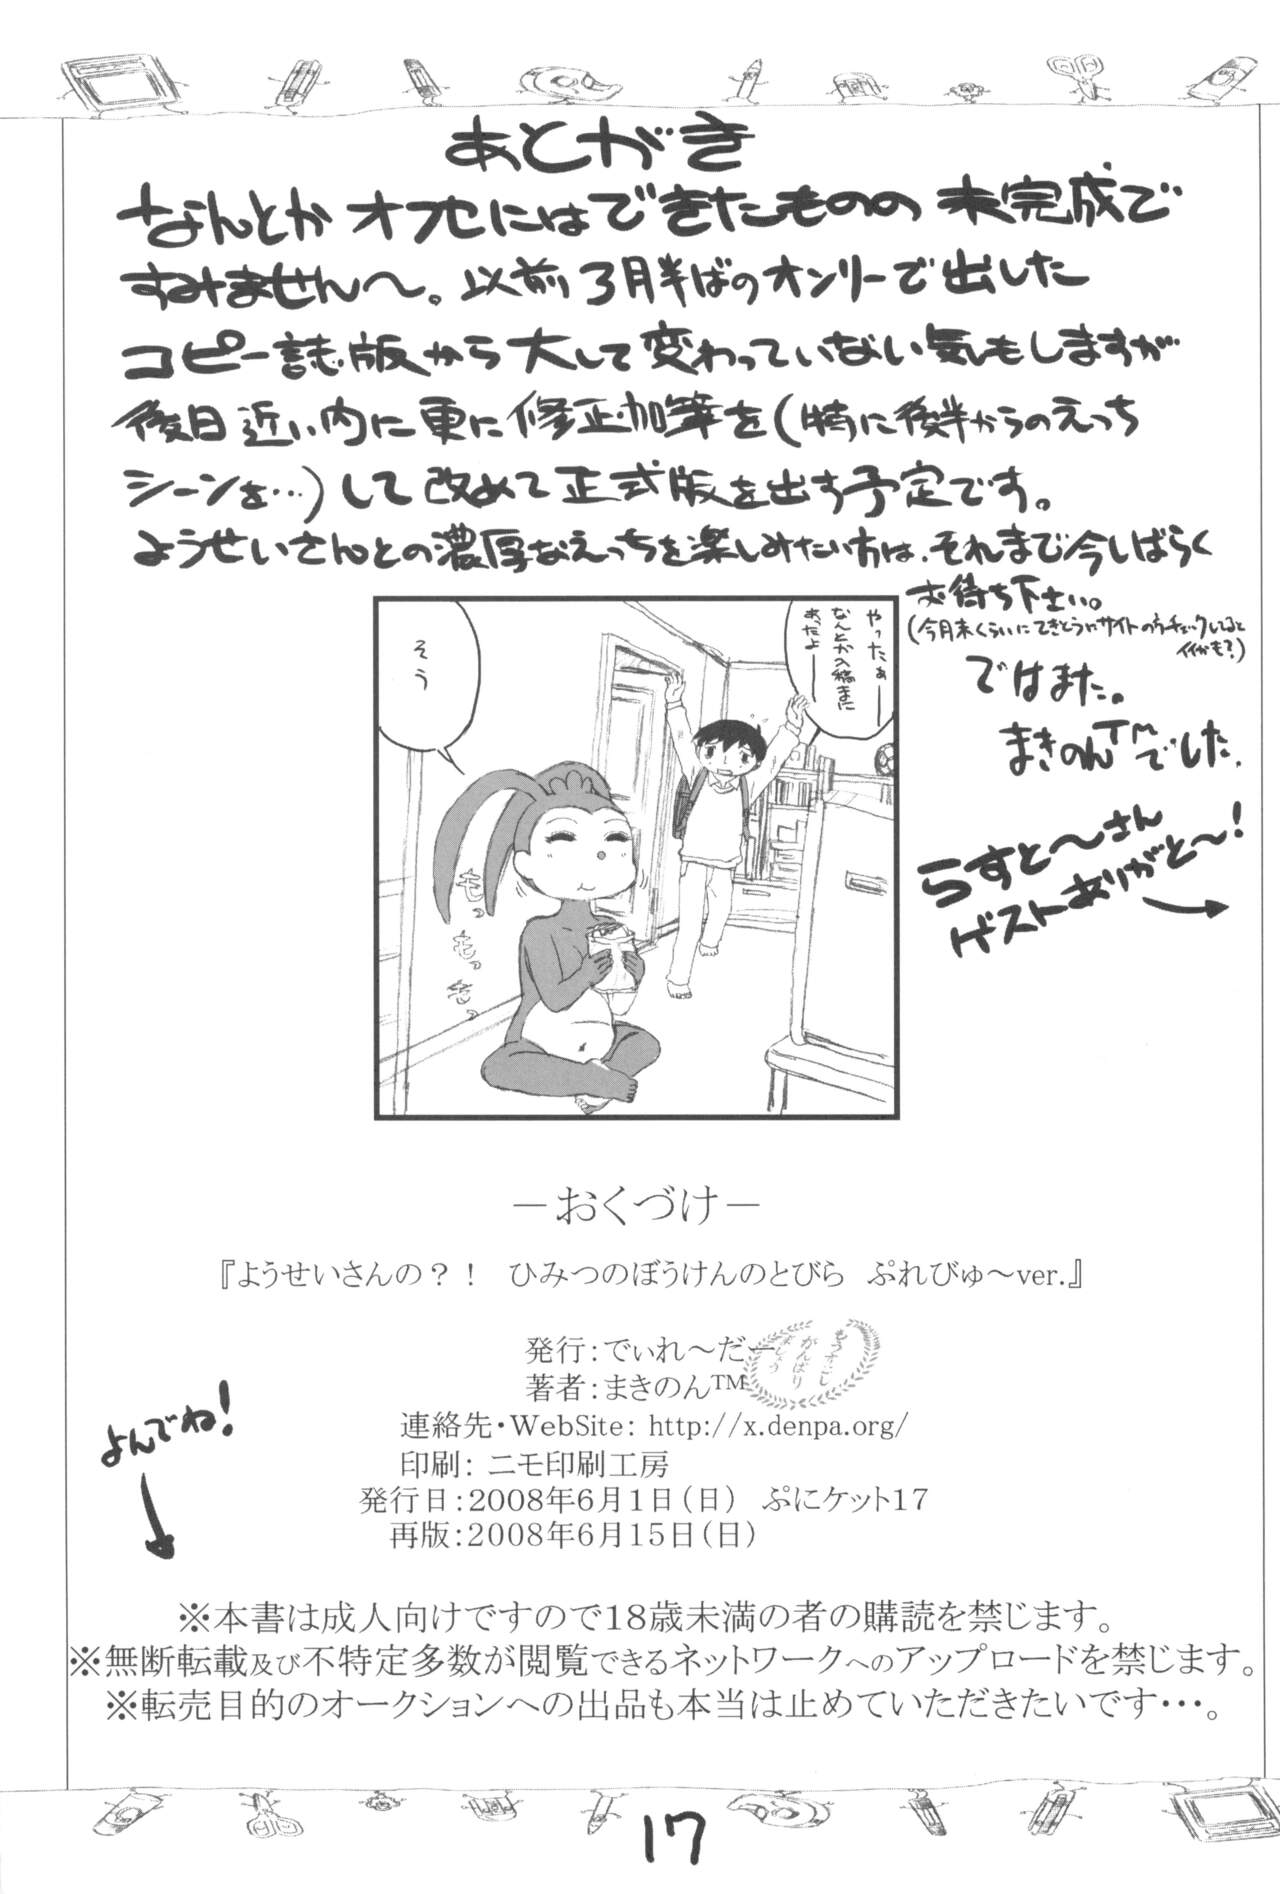 あとがき
なんとかオフセにはできたものの 未完成で
すみません～。以前3月半ばのオンリーで出した
コピー誌版から大して変わっていない気もしますが
後日近い内に更に修正加筆を(特に後半からのえっち
シーンを…)して改めて正式版を出す予定です。
ようせいさんとの濃厚なえっちを楽しみたい方は、それまで今しばらく
お待ち下さい。
(今月末くらいにてきとうにサイトの方チェックしてると
イイかも?)
ではまた。
まきのんTMでした.
らすと～さん
ゲストありがと～!
やったぁ――
なんとか入稿まに
あったよ――
そう
もっ
もっ
もっ
－おくづけ－
『ようせいさんの？！　ひみつのぼうけんのとびら　ぷれびゅ～ver.』
発行：でぃれ～だー
著者：まきのん™
もうすこし
がんばり
ましょう
連絡先・WebSite: http://x.denpa.org/
印刷: ニモ印刷工房
発行日：2008年6月1日（日）　ぷにケット17
再版：2008年6月15日（日）
よんでね!
※本書は成人向けですので18歳未満の者の購読を禁じます。
※無断転載及び不特定多数が閲覧できるネットワークへのアップロードを禁じます。
※転売目的のオークションへの出品も本当は止めていただきたいです・・・。
17